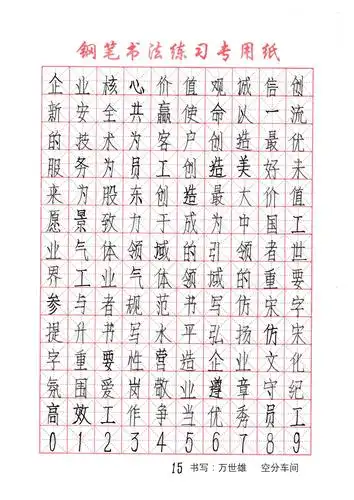 钢笔书法练习专用纸
企业核心价值观诚信创
新安全共赢使命以一流
的技术为客户创造最优
服务为员工创造美好未
来为股东创造最大价值
愿景致力于成为中国工
业气体领域的引领者世
界工业气体领域的重要
参与者规范书写仿宋字
提升书写水平弘扬仿宋
字重要性营造企业文化
氛围爱岗敬业遵章守纪
高效工作争当优秀员工
0123456789
15 书写:万世雄 空分车间